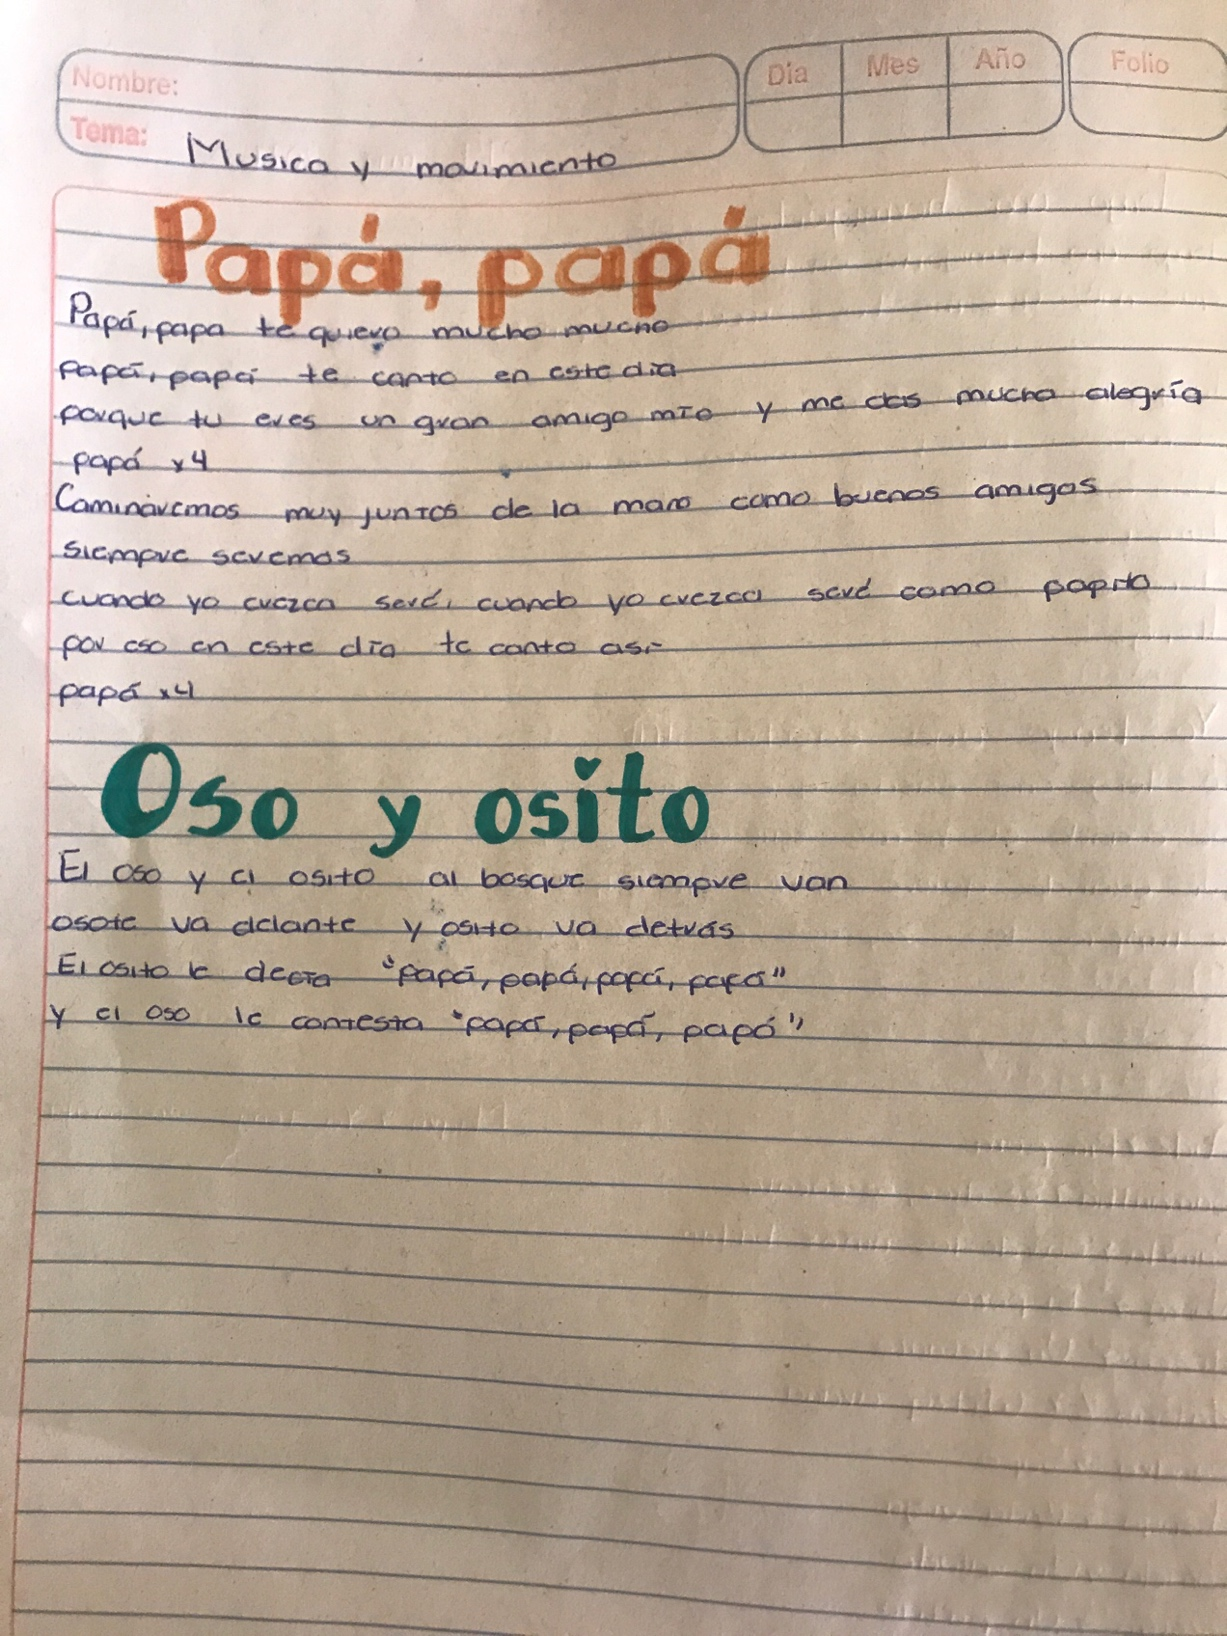 Nombre:
Dia Mes Año Folio
Tema: Musica y movimiento
Papá, papá
Papá, papa te quiero mucho mucho
papá, papá te canto en este dia
porque tu eres un gran amigo mío y me das mucha alegría
papá x4
Caminaremos muy juntos de la mano como buenos amigos
siempre seremos
cuando yo crezca seré, cuando yo crezca seré como papito
por eso en este día te canto así
papá x4
Oso y osito
El oso y el osito al bosque siempre van
osote va delante y osito va detrás
El osito le decía "papá, papá, papá, papá"
y el oso le contesta "papá, papá, papá"